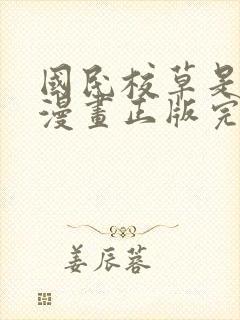 國民校草是
漫畫正版完
姜辰蓉